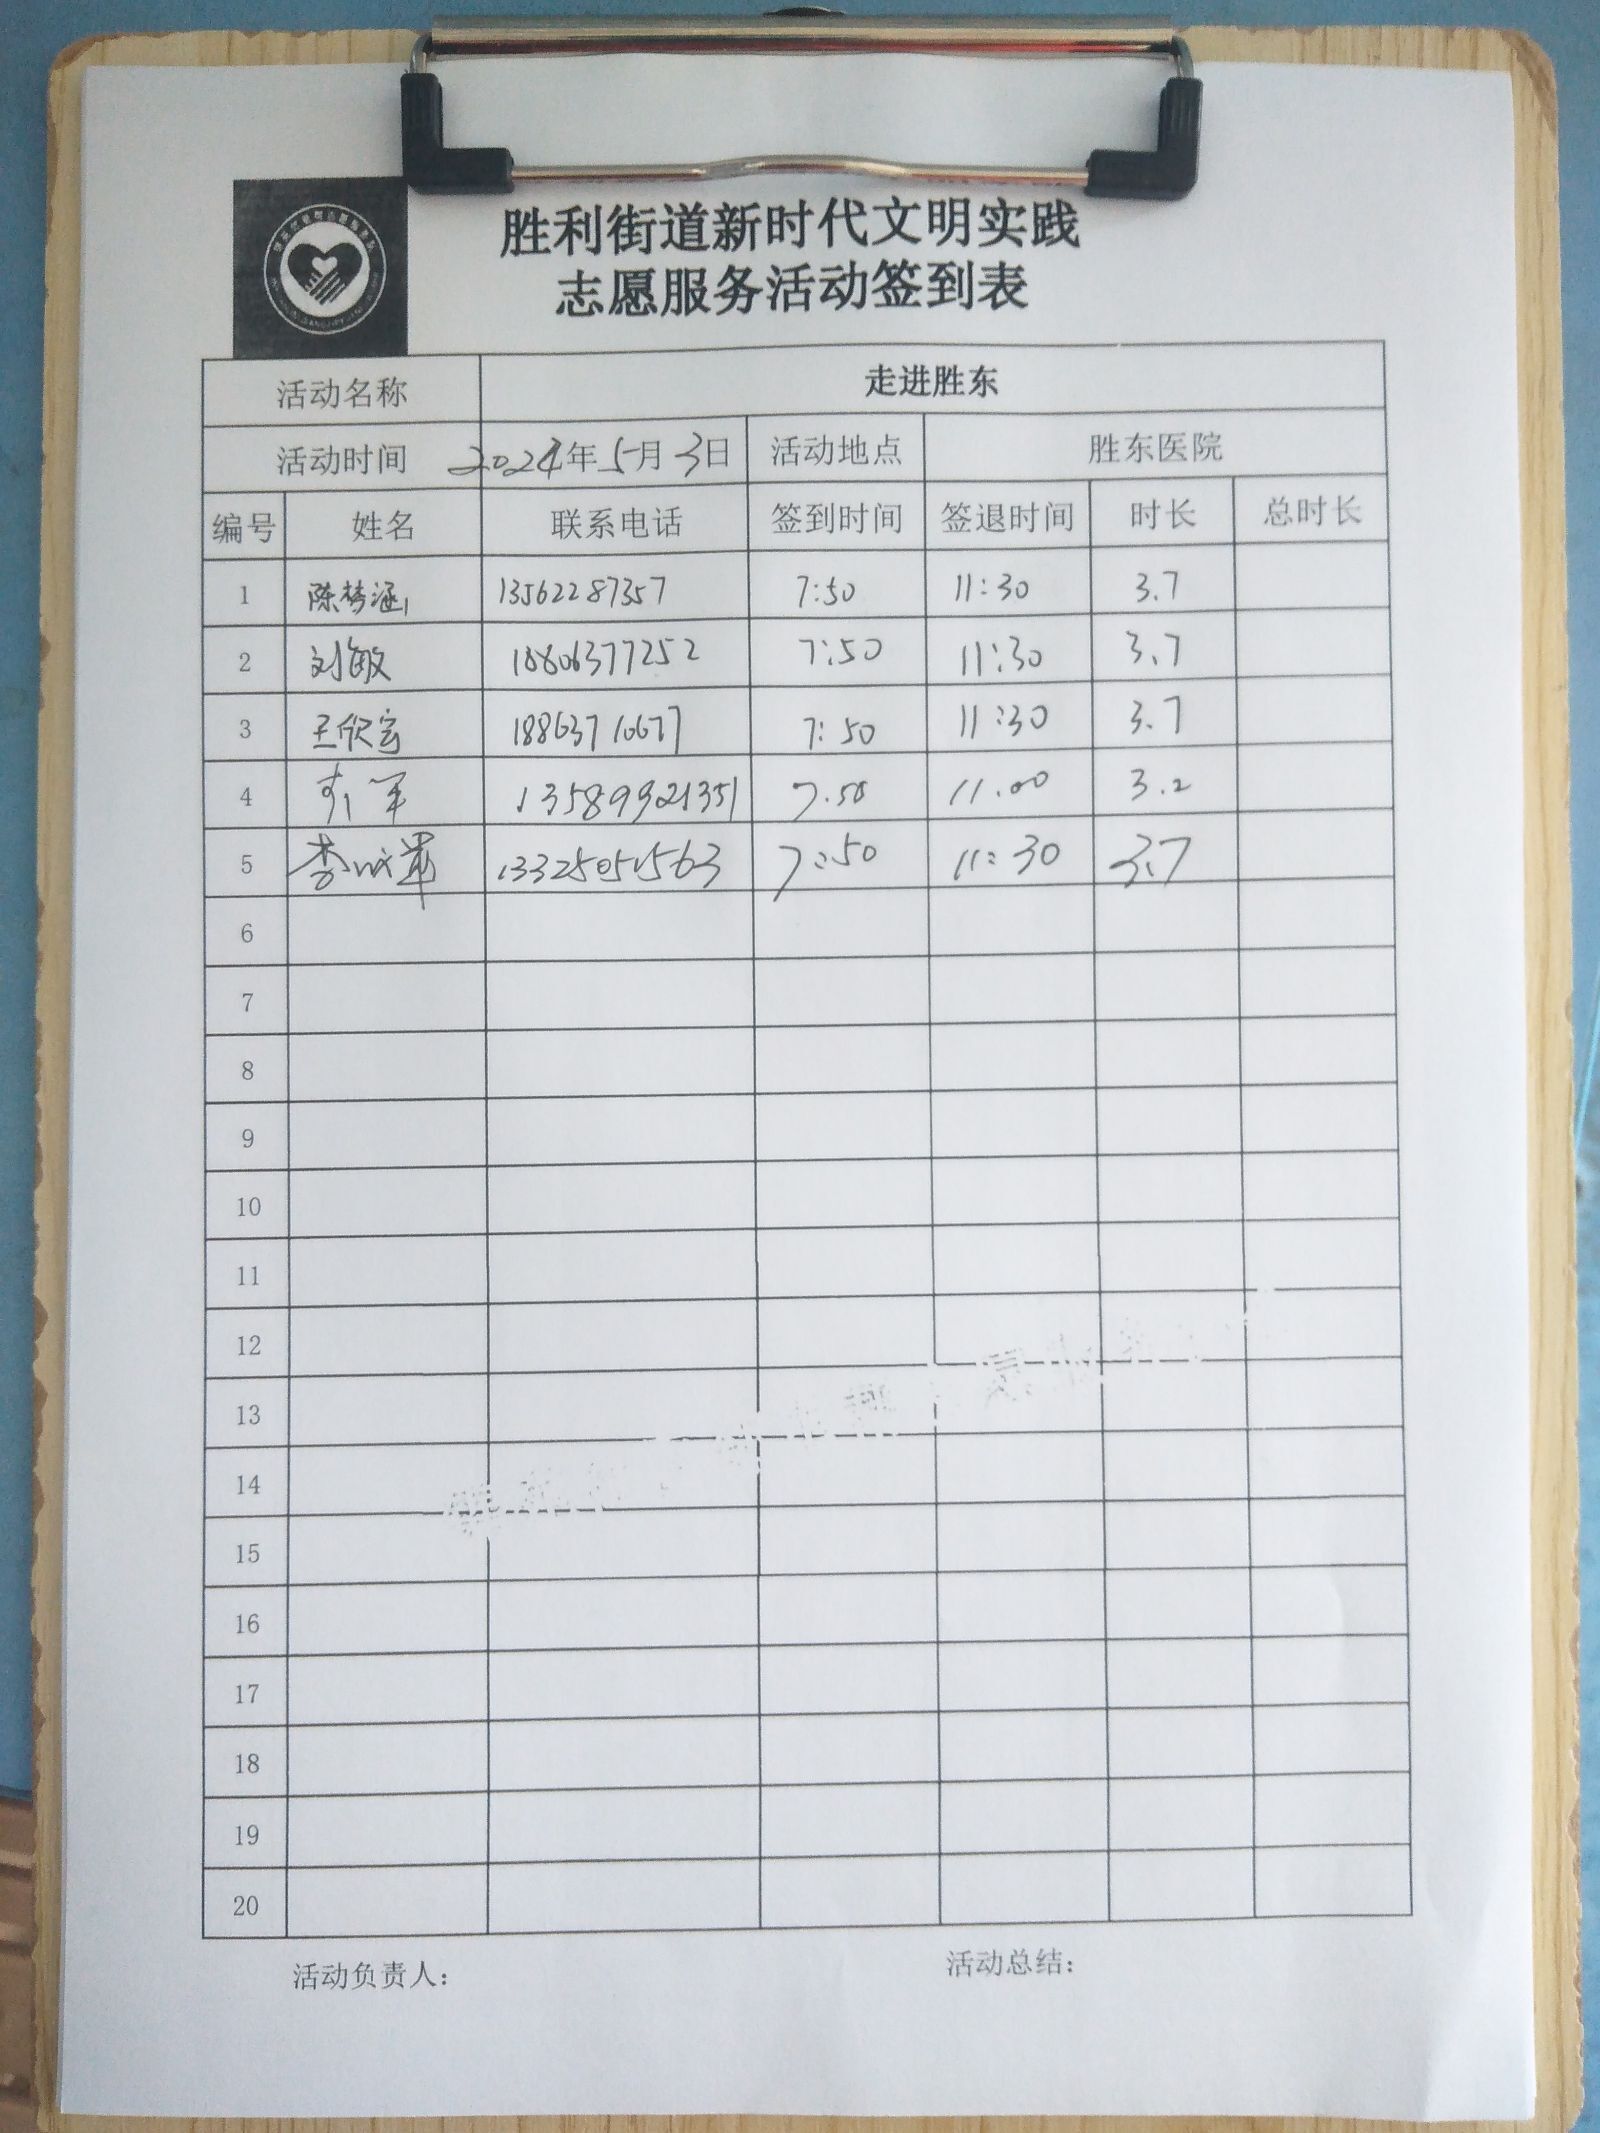 胜利街道新时代文明实践
志愿服务活动签到表
活动名称 走进胜东
活动时间 2024年5月3日 活动地点 胜东医院
编号 姓名 联系电话 签到时间 签退时间 时长 总时长
1 陈梦涵 13562287357 7:50 11:30 3.7
2 刘敏 18806377252 7:50 11:30 3.7
3 王欣宫 18863710677 7:50 11:30 3.7
4 13589921351 7.50 11.00 3.2
5 李成军 13325051563 7:50 11:30 3.7
6
7
8
9
10
11
12
13
14
15
16
17
18
19
20
活动负责人： 活动总结：